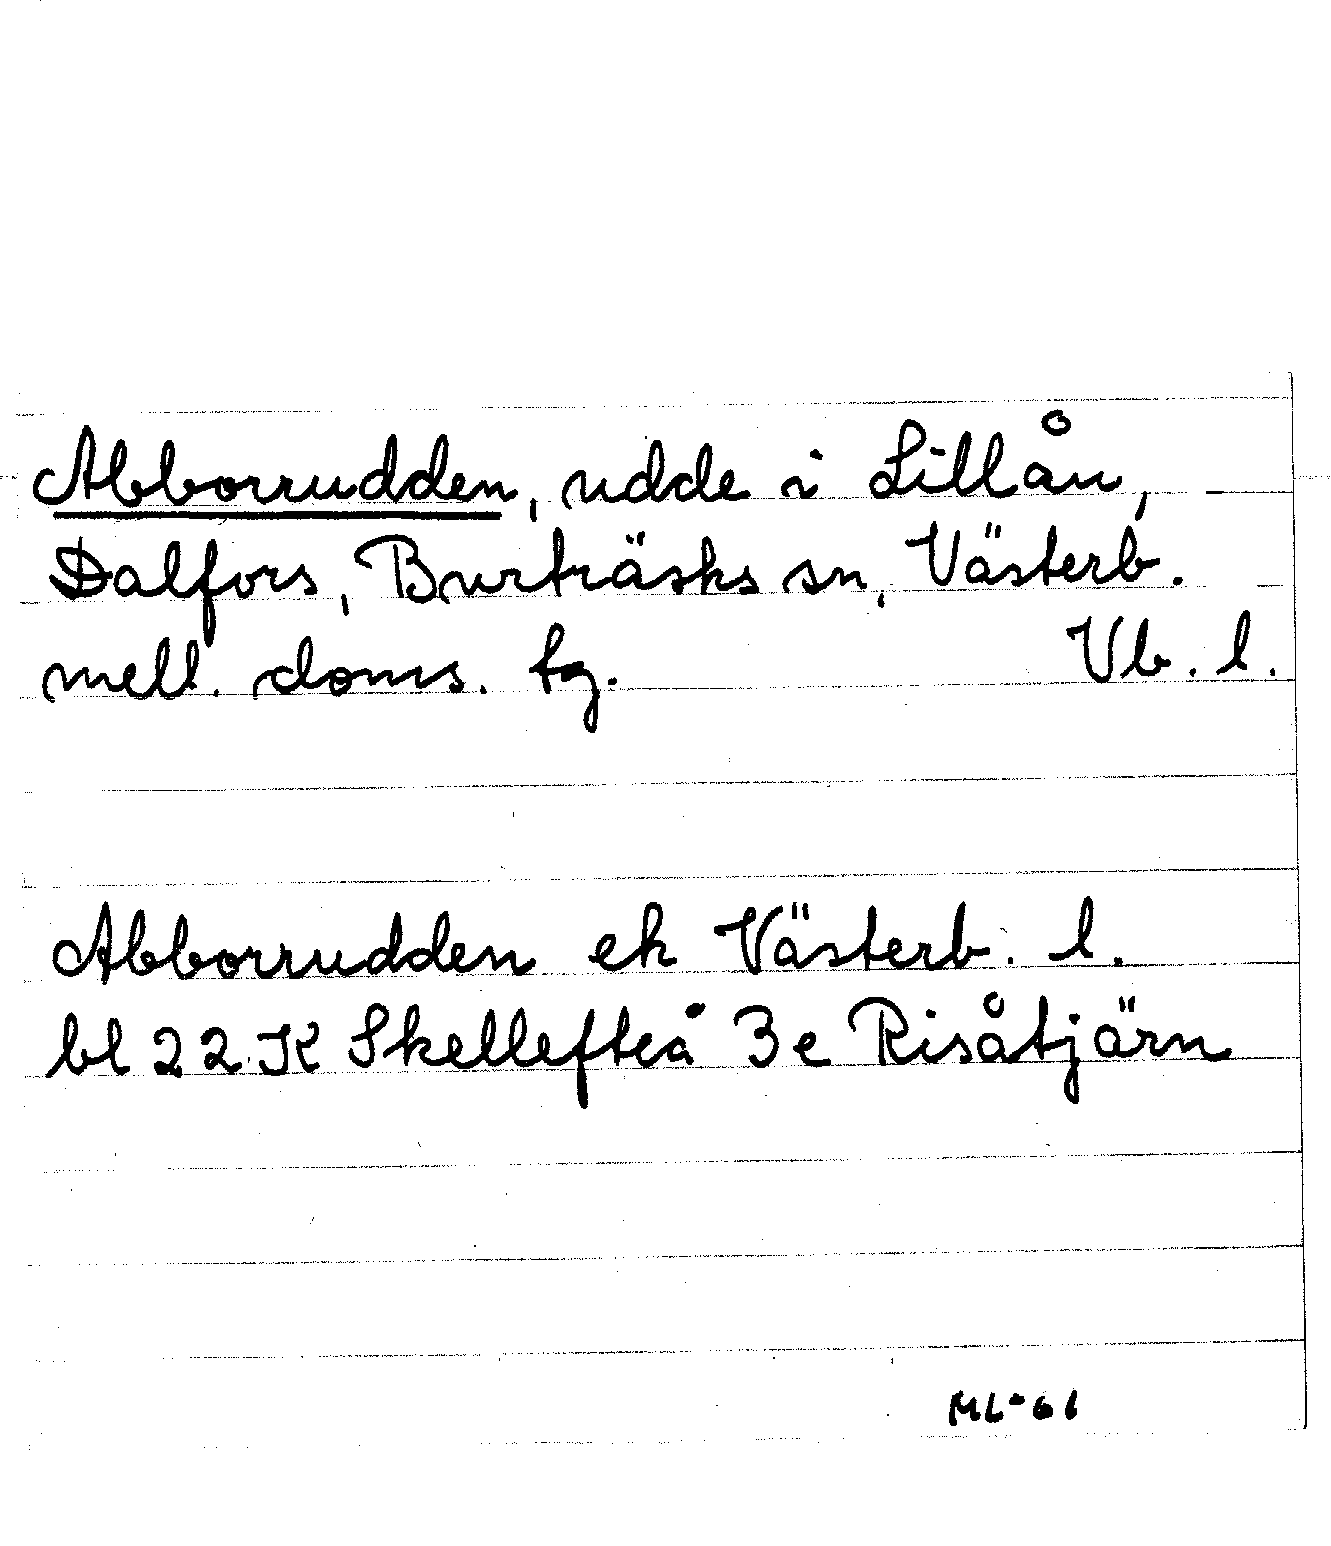 Abborrudden, udde i Lillån,
Dalfors, Burträsks sn, Västerb.
mell. doms. tg. Vb. l.
Abborrudden ek Västerb. l.
bl 22 K Skellefteå 3e Risåtjärn
ML-61